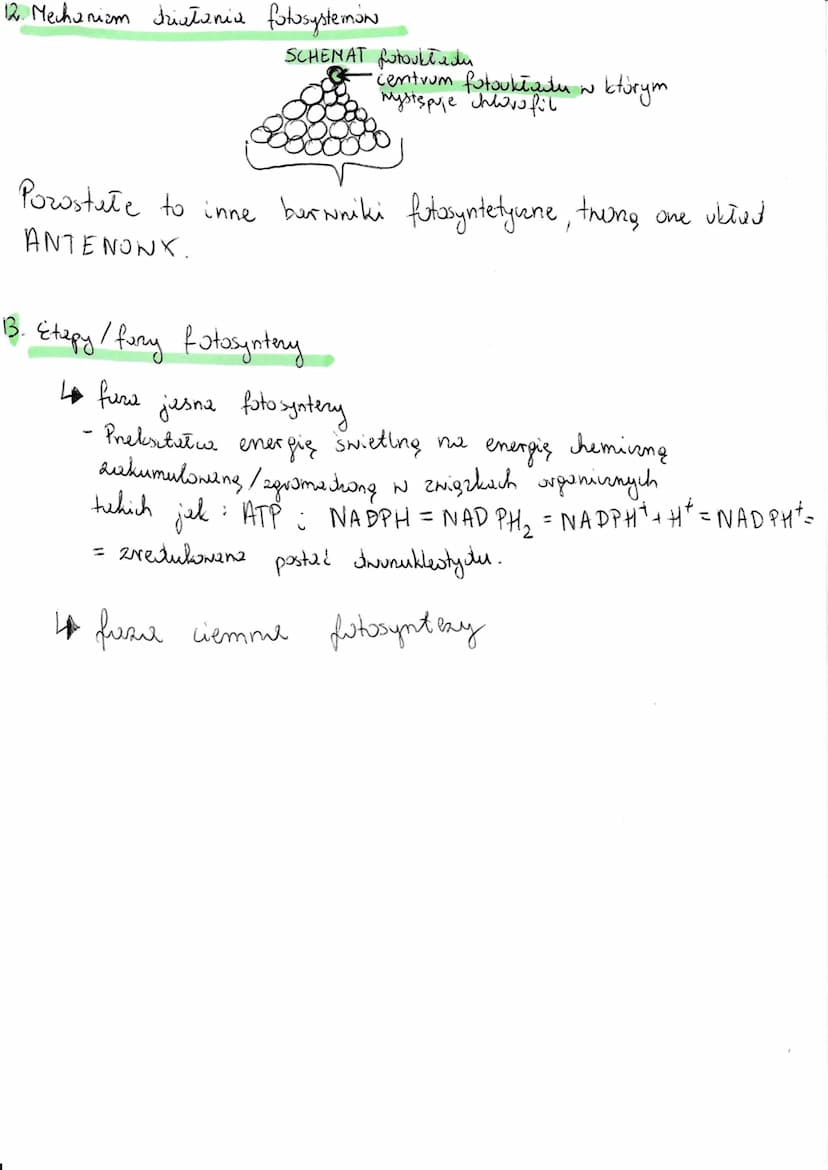 12. Mechanizm działania fotosystemów
SCHEMAT fotoukładu
centrum fotoukładu w którym
występuje chlorofil
Pozostałe to inne barwniki fotosyntetyczne, tworzą one układ
ANTENOWY.
13. Etapy/fazy fotosyntezy
↳ faza jasna fotosyntezy
- Przekształca energię świetlną na energię chemiczną
zakumulowaną/zgromadzoną w związkach organicznych
takich jak: ATP i NADPH = NADPH₂ = NADPH⁺ + H⁺ = NADPH⁺ =
= zredukowana postać dwunukleotydu.
↳ faza ciemna fotosyntezy